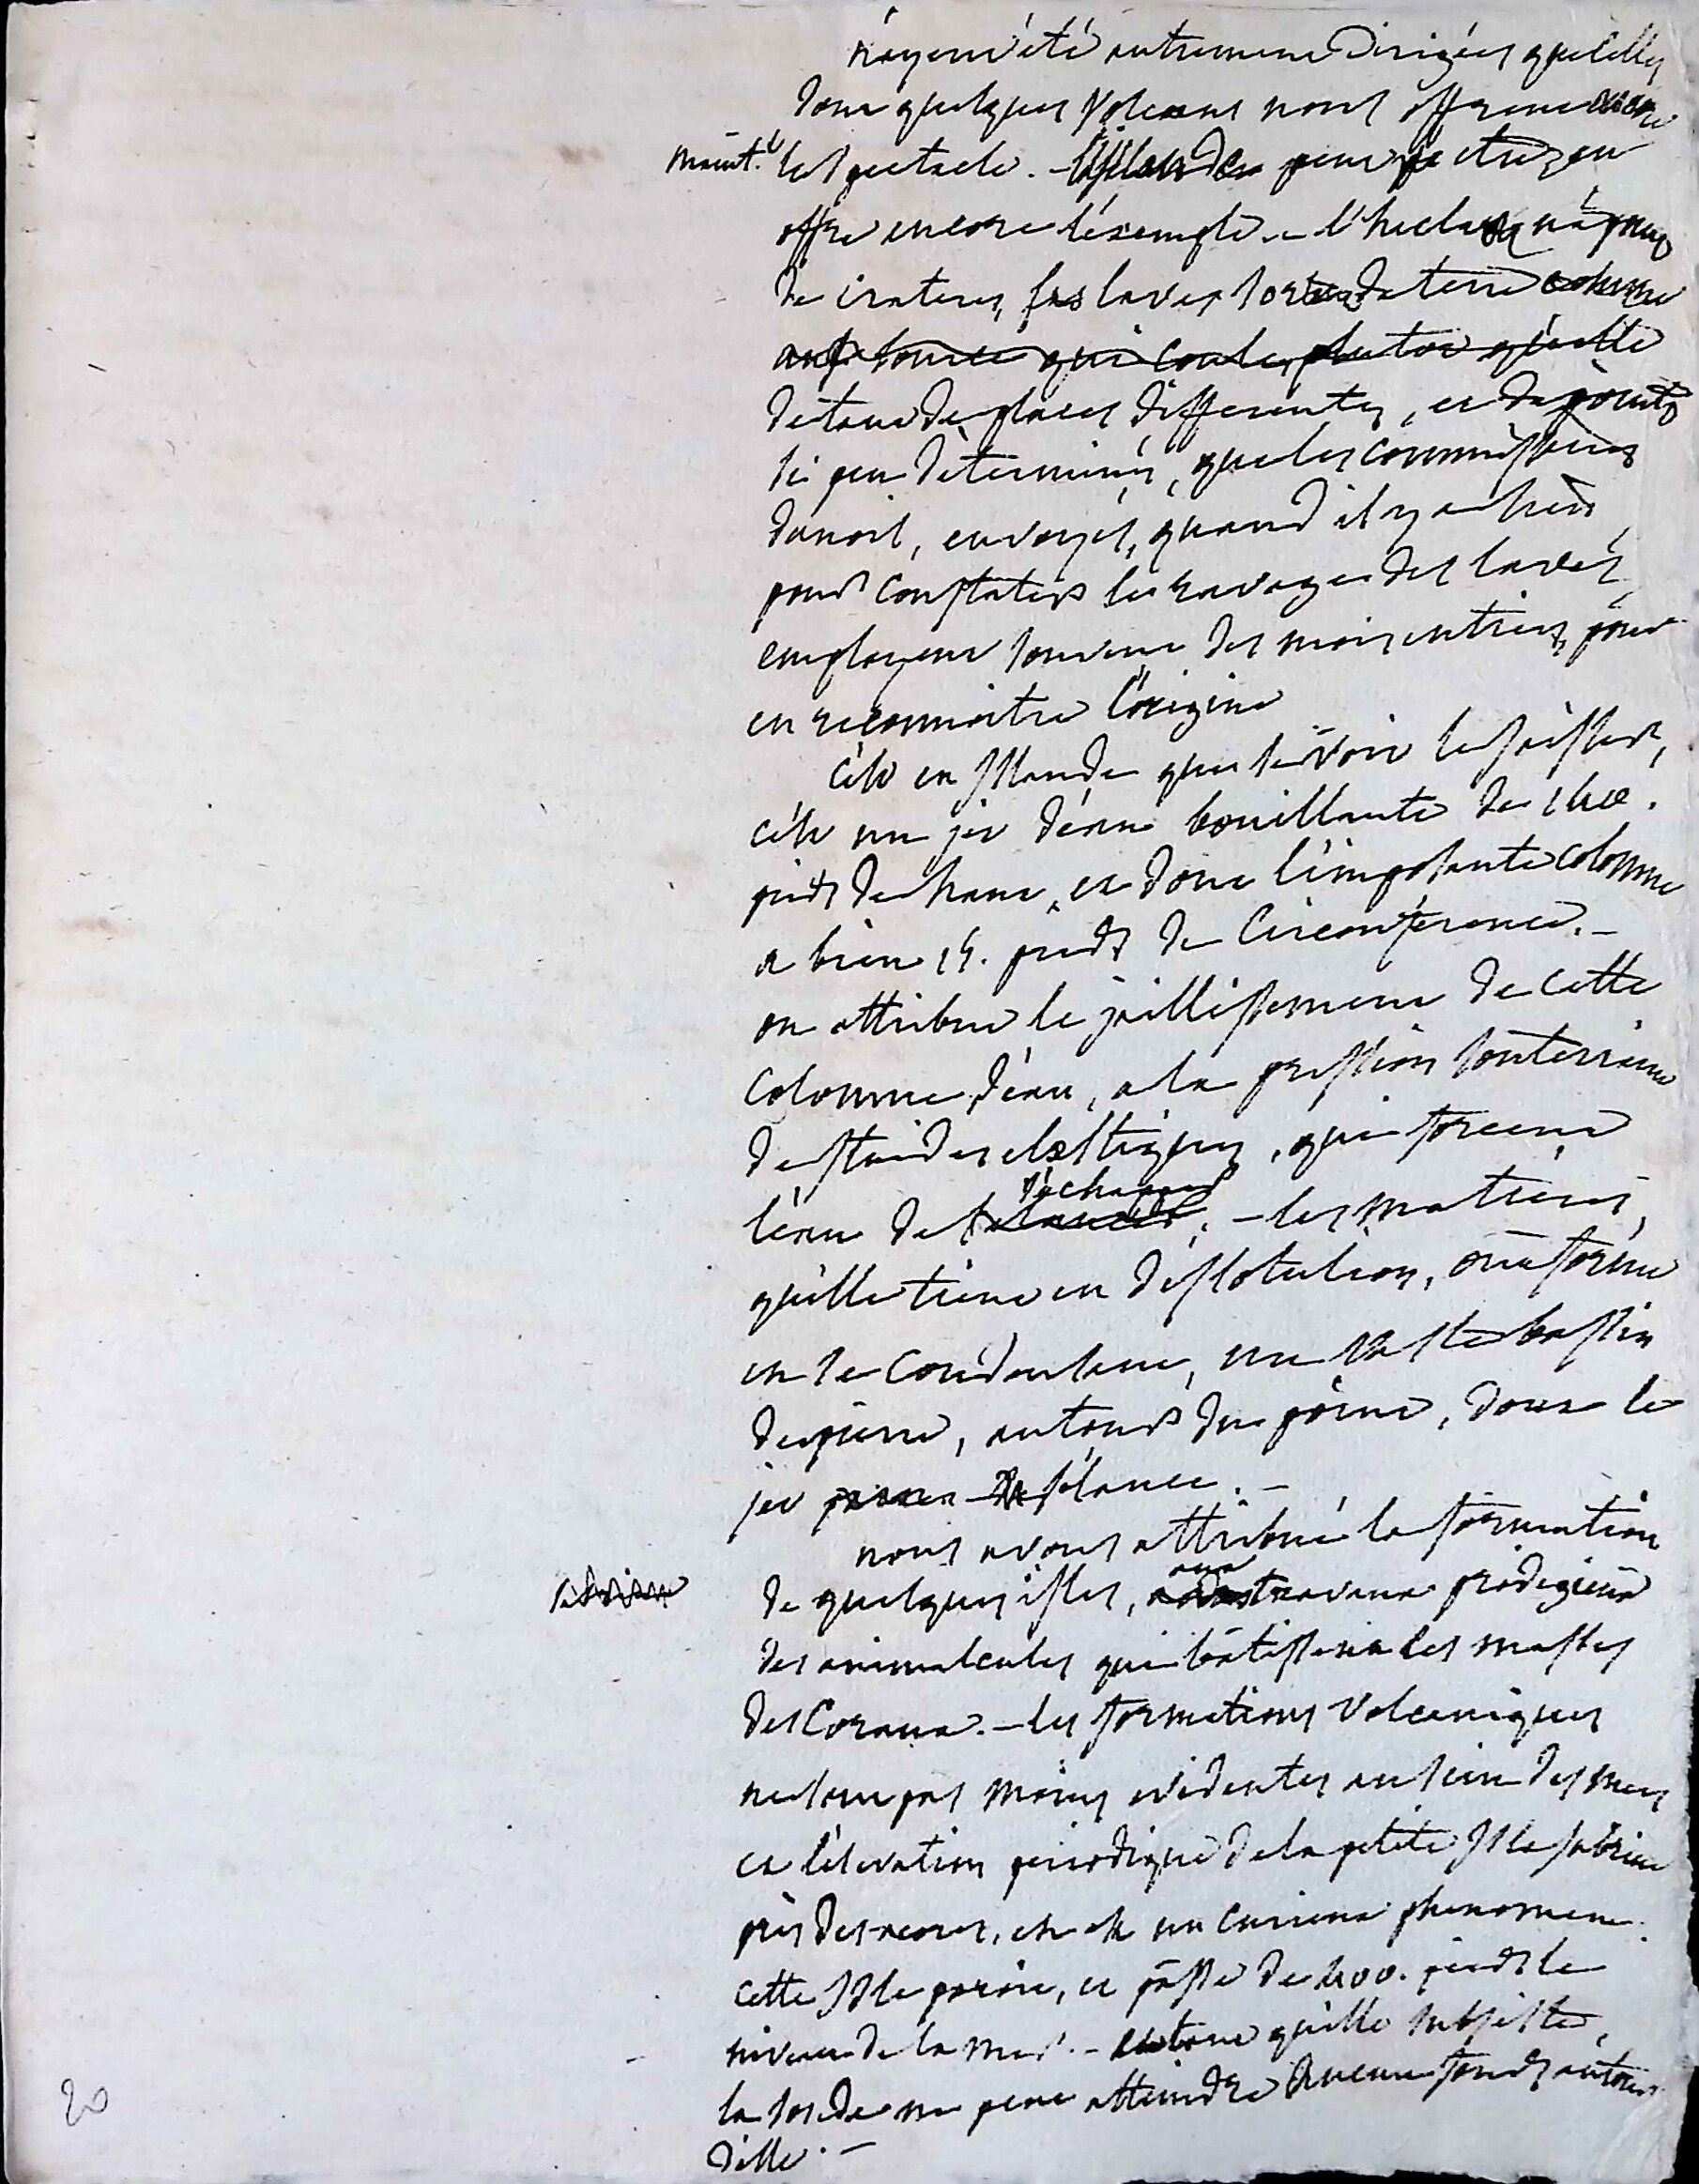 n'ayent été autrement dirigées que celles
dont quelques Volcans nous offrent
maint.t le spectacle. – l'islande peut etre, en
offre encore l'exemple – l'hecla n'a point
de crateres, ses laves sortent de terre comme
une source qui coule, plutor qu'elle
de tant de places differentes, et de points
si peu déterminés, que les commissaires
danois, envoyés, quand il y a lieu
pour constater les ravages des laves,
employent souvent des mois entiers, pour
en reconnoitre l'origine
c'est en Islande que se voit le
c'est un jet d'eau bouillante de
pieds de haut, et dont l'imposante colonne
a bien 15. pieds de circonférence. –
on attribue le jaillissement de cette
colonne d'eau, a la pression souterraine
de fluides elastiques, qui forcent
l'eau de s'échapper
s'elancer. – les matieres,
qu'elle tient en dissolution, ont formé
en se condensant, un vaste bassin
de pierre, autour du point, dont le
jet s'élance. –
nous avons attribué la formation
de quelques isles, aux travaux prodigieux
des animalcules qui bâtissent les masses
des Coraux. – les formations Volcaniques
ne sont pas moins evidentes au sein des mers
et l'élevation periodique de la petite Isle sabrina
près des acores, en est un curieux phenomene.
cette Isle paroit, et passe de 400. pieds le
niveau de la mer. – autant qu'elle subsiste,
la sonde ne peut atteindre aucun fonds autour
d'elle. –
20